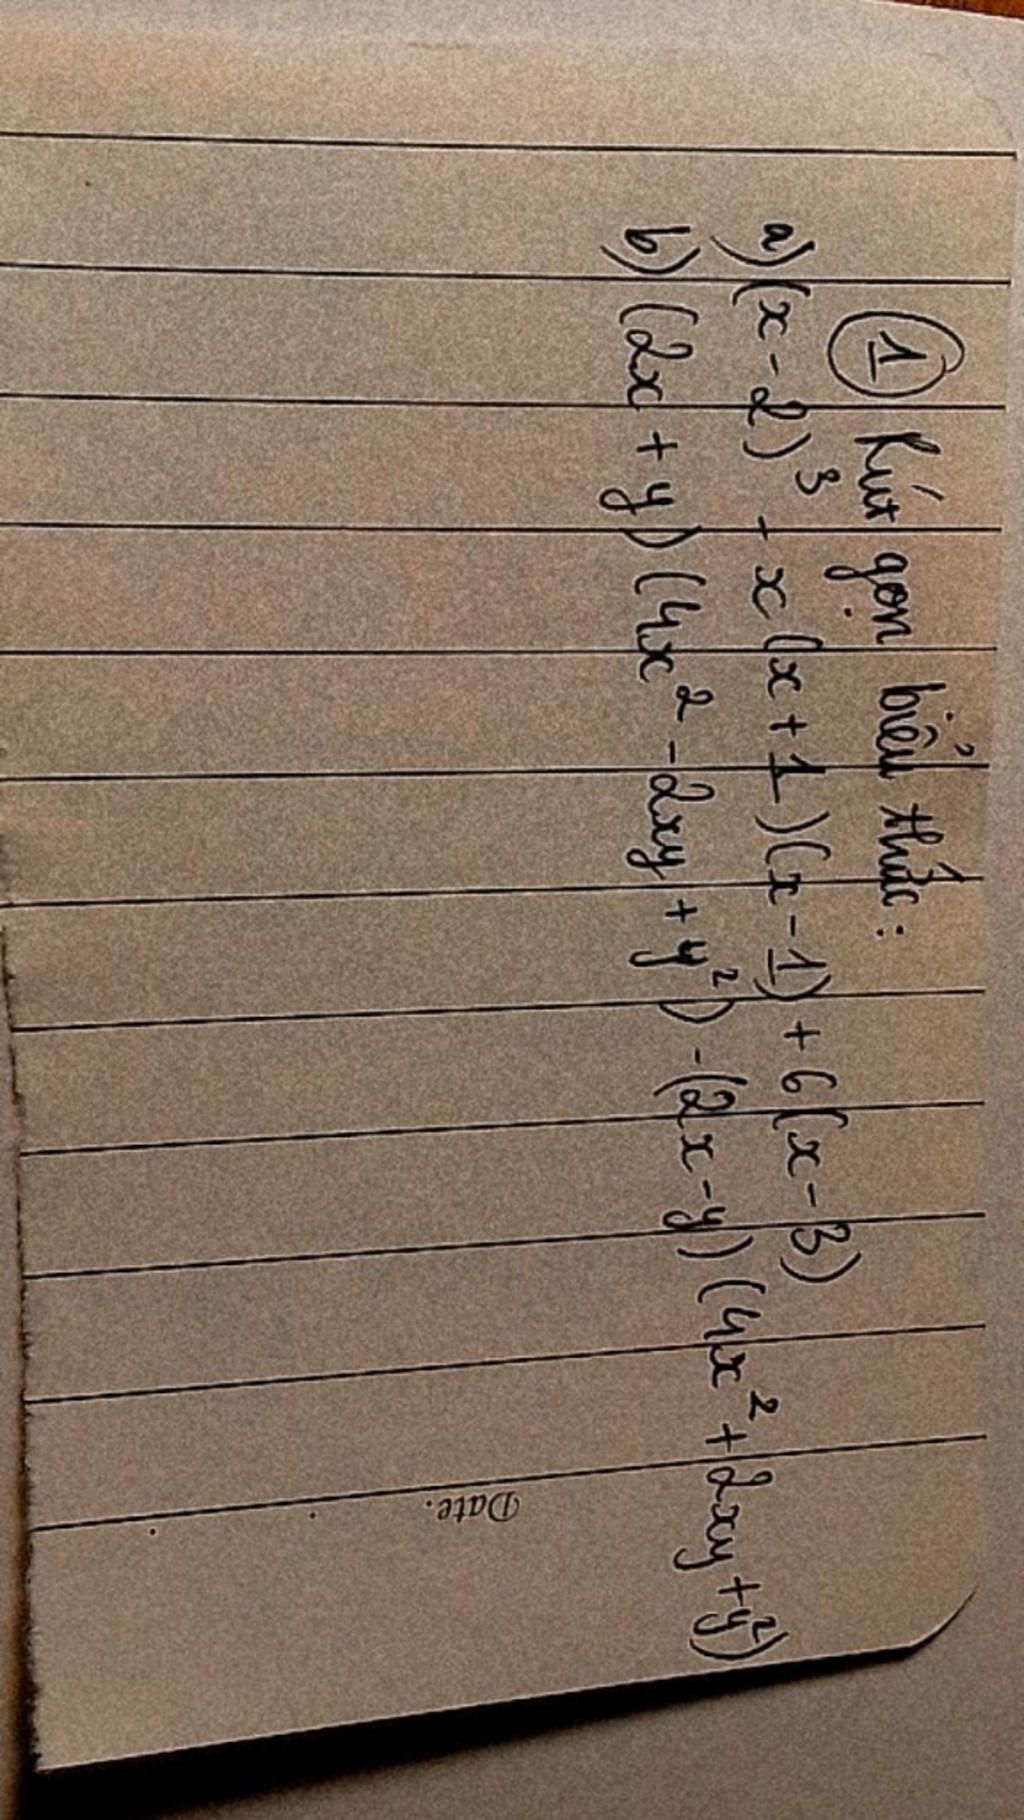 ① Rút gọn biểu thức:
a) (x - 2)³ - x(x + 1)(x - 1) + 6(x - 3)
b) (2x + y)(4x² - 2xy + y²) - (2x - y)(4x² + 2xy + y²)
Date.